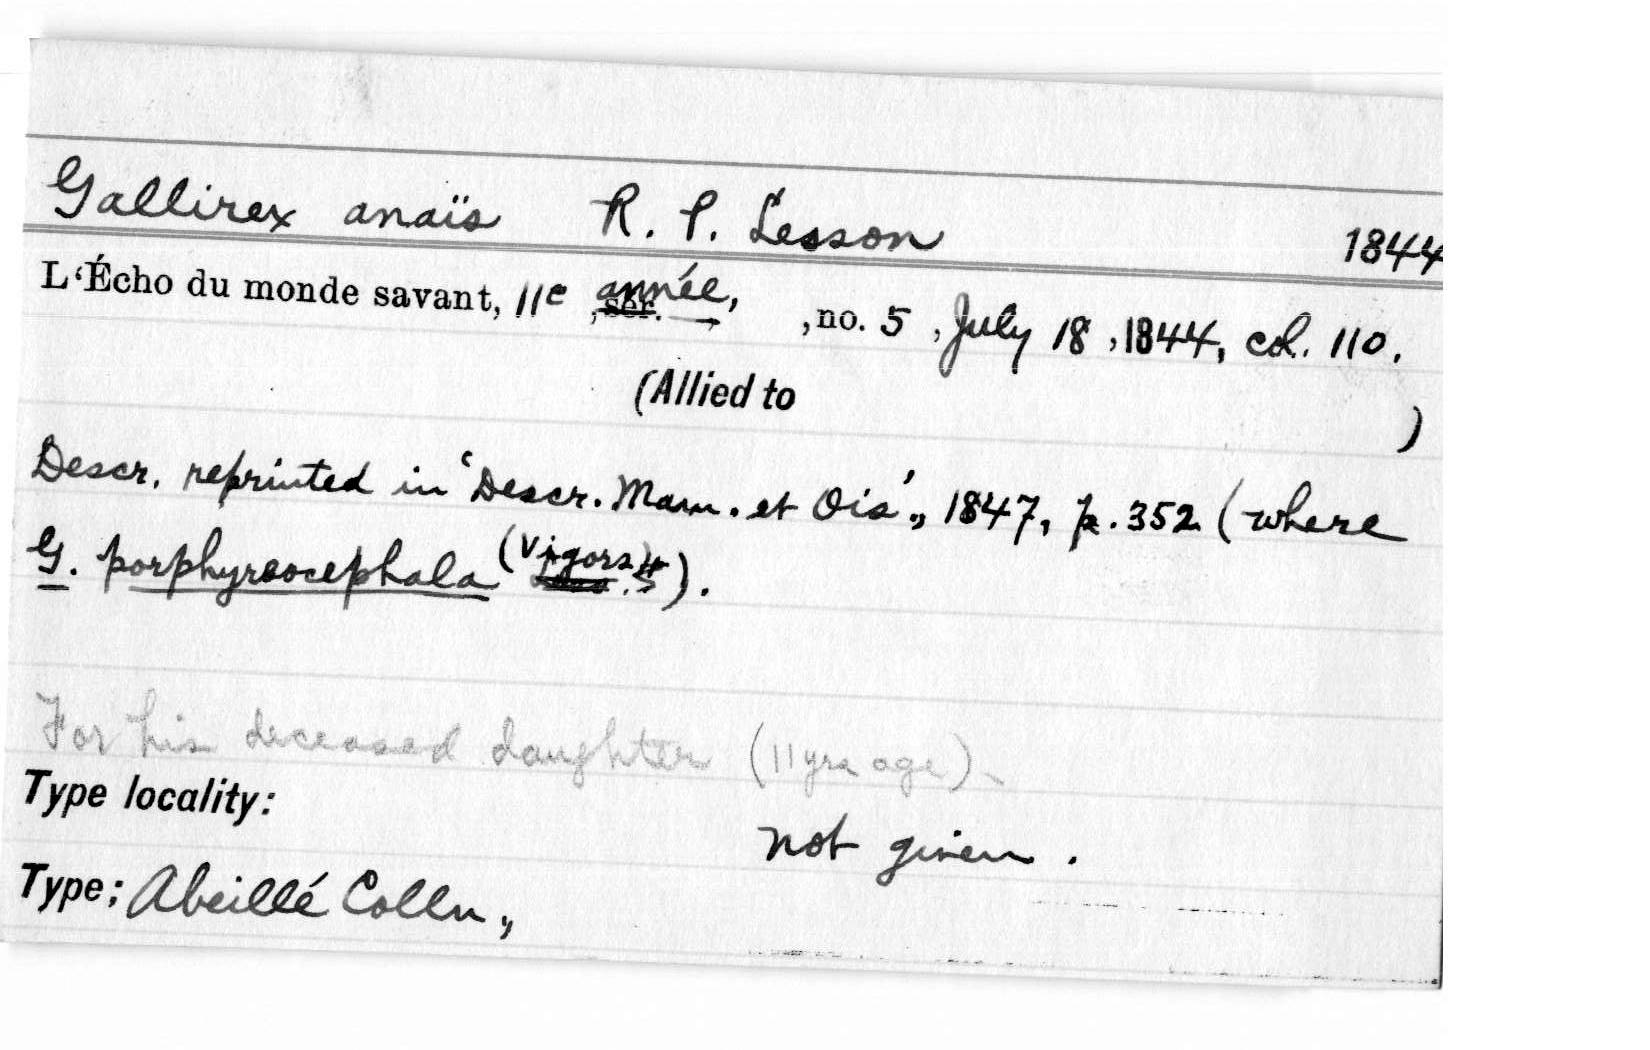 Gallirex anaïs R. P. Lesson 1844
L'Écho du monde savant, 11e ,ser. année, , no. 5 , July 18 , 1844, col. 110.
(Allied to )
Descr. reprinted in 'Descr. Mam. et Ois'., 1847, p. 352 (where
G. porphyreocephala (Vigors)).
For his deceased daughter (11 yrs age).
Type locality:
not given.
Type; Abeillé Colln.,